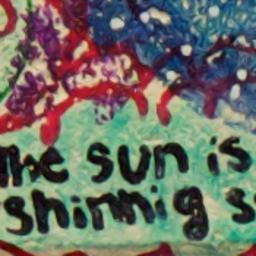 The sun is
shinnig s